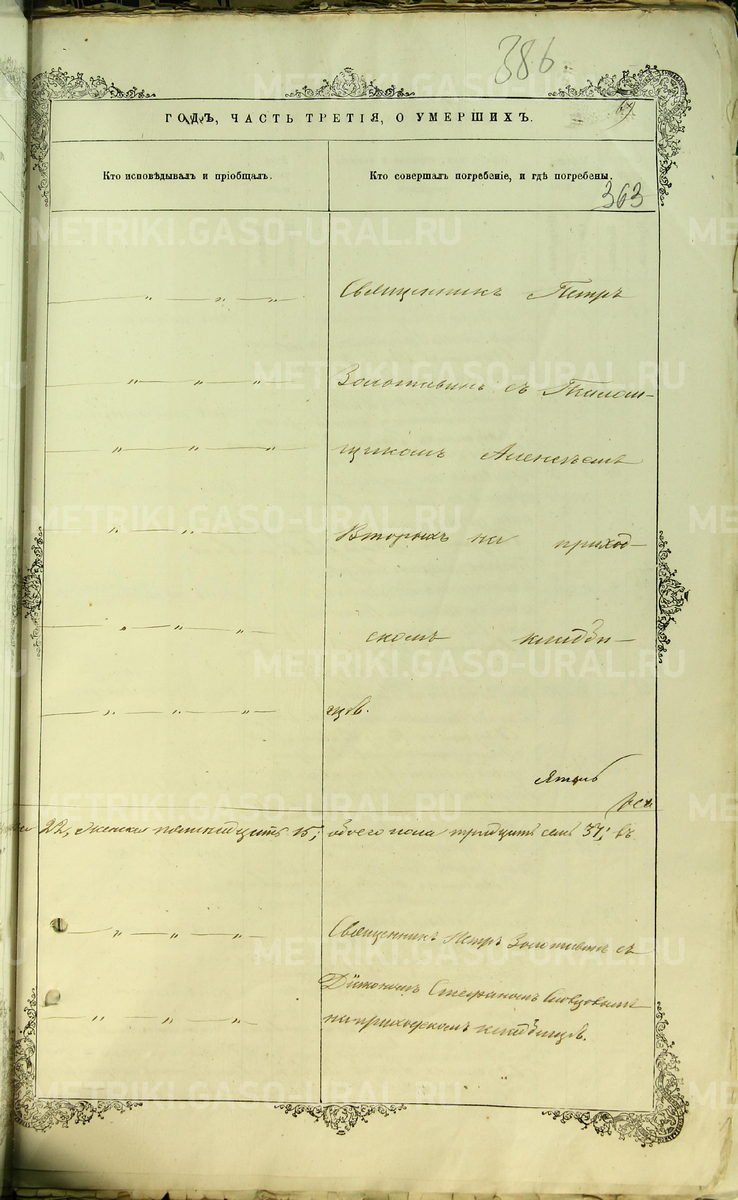 386
ГОДЪ, ЧАСТЬ ТРЕТІЯ, О УМЕРШИХЪ.
67
Кто исповѣдывалъ и пріобщалъ.
Кто совершалъ погребеніе, и гдѣ погребены.
363
Священникъ Петръ
Золотавинъ съ
Алексѣемъ
Вторыхъ на приход-
скомъ кладби-
щѣ.
22, женска пятнадцать 15; обоего пола тридцать семь 37; въ
Священникъ Петръ Золотавинъ съ
Діакономъ Стефаномъ
на приходскомъ кладбищѣ.
METRIKI.GASO-URAL.RU